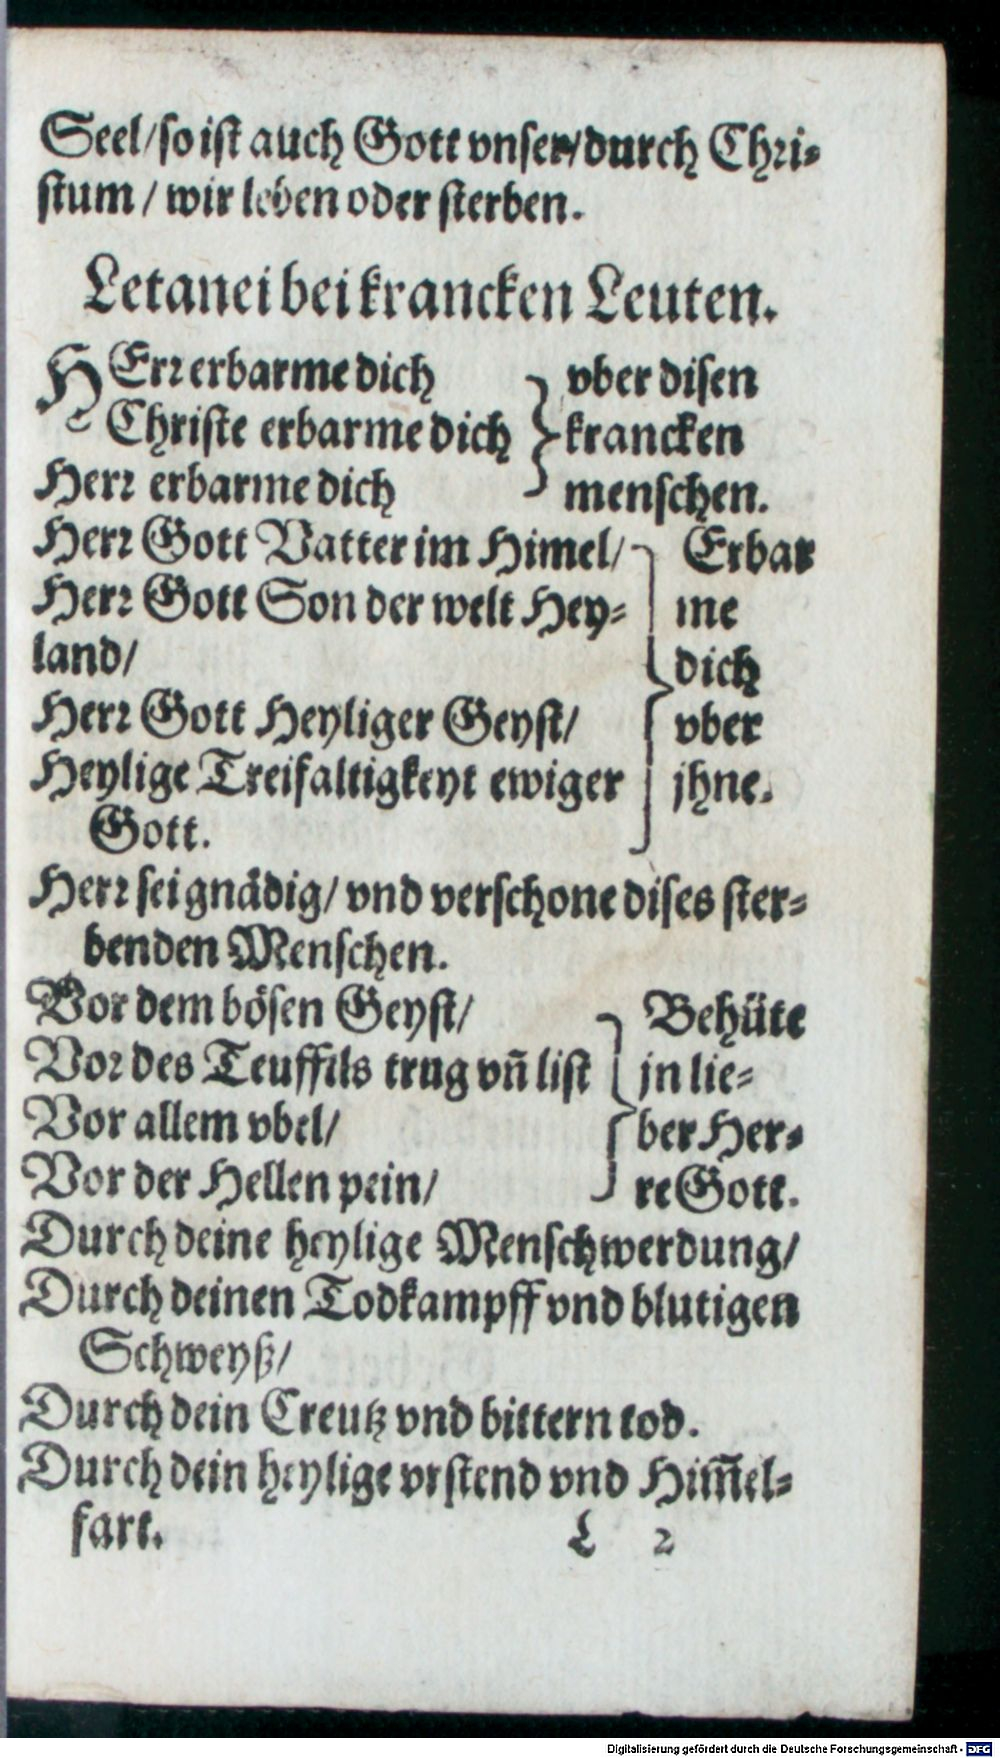 Seel/so ist auch Gott vnser/durch Chri⸗
stum / wir leben oder sterben.
Letanei bei krancken Leuten.
HErꝛ erbarme dich
Christe erbarme dich
Herꝛ erbarme dich
vber disen
krancken
menschen.
Herꝛ Gott Vatter im Himel/
Herꝛ Gott Son der welt Hey⸗
land/
Herꝛ Gott Heyliger Geyst/
Heylige Treifaltigkeyt ewiger
Gott.
Erbar
me
dich
vber
jhne.
Herꝛ sei gnädig/ vnd verschone dises ster⸗
benden Menschen.
Vor dem bösen Geyst/
Voꝛ des Teuffels trug vn̄ list
Vor allem vbel/
Vor der Hellen pein/
Behüte
jn lie⸗
ber Her⸗
re Gott.
Durch deine heylige Menschwerdung/
Durch deinen Todkampff vnd blutigen
Schweyß/
Durch dein Creutz vnd bittern tod.
Durch dein heylige vrstend vnd Him̄el⸗
fart.
L 2
Digitalisierung gefördert durch die Deutsche Forschungsgemeinschaft - DFG